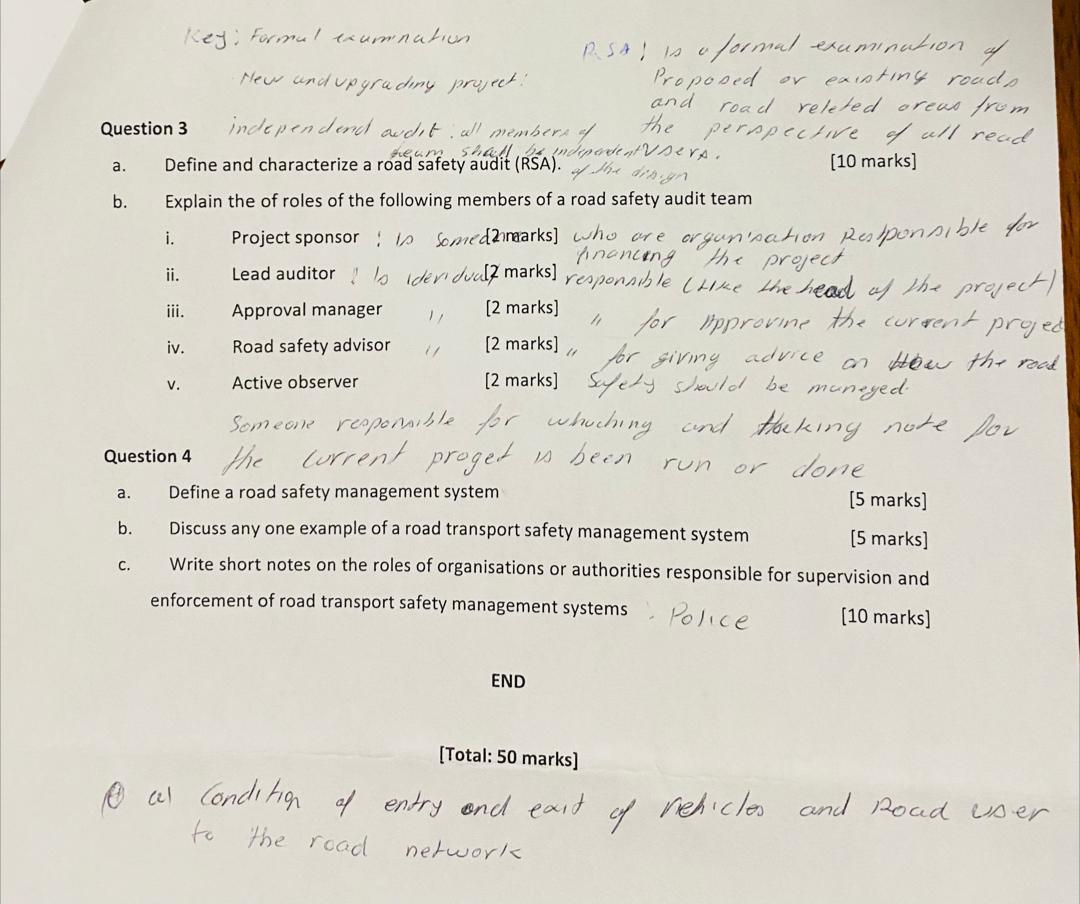 Key: Formal examination
RSA: is a formal examination of
New and upgrading project:
Proposed or existing roads
and road releted areas from
Question 3
independend audit: all members of
the perspective of all road
team shall be independent
Users.
a. Define and characterize a road safety audit (RSA). [10 marks]
of the design
b. Explain the of roles of the following members of a road safety audit team
i. Project sponsor : is [2 marks] who are organisation Responsible for
financing the project
ii. Lead auditor : Is [2 marks] responsible (like the head of the project)
iii. Approval manager " [2 marks] " for Approvine the current projec
iv. Road safety advisor " [2 marks] " for giving advice on How the road
v. Active observer [2 marks] Safety should be maneged.
Someone responsible for whaching and thaking note for
Question 4 the current proget is been run or done
a. Define a road safety management system [5 marks]
b. Discuss any one example of a road transport safety management system [5 marks]
c. Write short notes on the roles of organisations or authorities responsible for supervision and
enforcement of road transport safety management systems : Police [10 marks]
END
[Total: 50 marks]
a) Condition of entry and exit of vehicles and Road user
to the road network